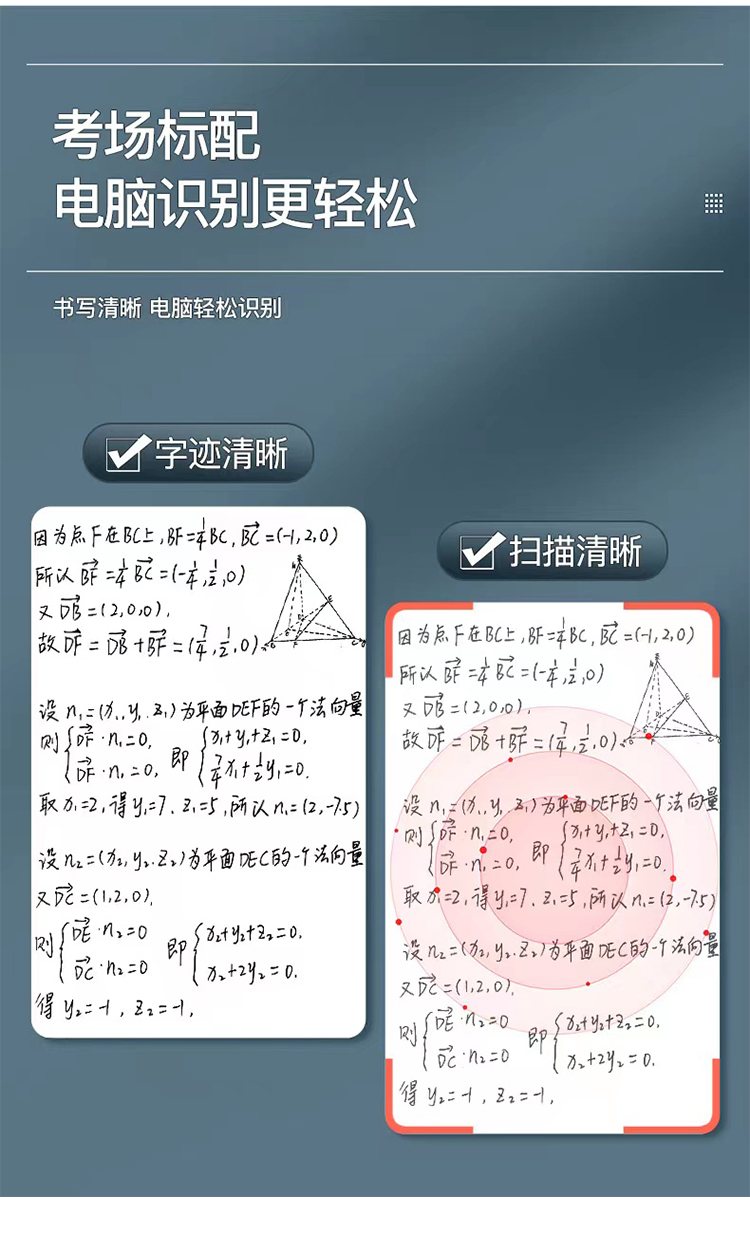 考场标配
电脑识别更轻松
书写清晰 电脑轻松识别
字迹清晰
因为点F在BC上,BF=¼BC,BC⃗=(-1,2,0)
所以BF⃗=¼BC⃗=(-¼,½,0)
又DB⃗=(2,0,0),
故DF⃗=DB⃗+BF⃗=(7/4,½,0)
设n₁=(x₁,y₁,z₁)为平面DEF的一个法向量
则{DF⃗·n₁=0, DF⃗·n₁=0, 即{x₁+y₁+z₁=0, 7/4x₁+½y₁=0.
取x₁=2,得y₁=7、z₁=5,所以n₁=(2,-7.5)
设n₂=(x₂,y₂.z₂)为平面DEC的一个法向量
又DC⃗=(1,2,0),
则{DE⃗·n₂=0 DC⃗·n₂=0 即{x₂+y₂+z₂=0, x₂+2y₂=0.
得y₂=-1,z₂=-1,
扫描清晰
因为点F在BC上,BF=¼BC,BC⃗=(-1,2,0)
所以BF⃗=¼BC⃗=(-¼,½,0)
又DB⃗=(2,0,0),
故DF⃗=DB⃗+BF⃗=(7/4,½,0)
设n₁=(x₁,y₁,z₁)为平面DEF的一个法向量
则{DF⃗·n₁=0, DF⃗·n₁=0, 即{x₁+y₁+z₁=0, 7/4x₁+½y₁=0.
取x₁=2,得y₁=7、z₁=5,所以n₁=(2,-7.5)
设n₂=(x₂,y₂.z₂)为平面DEC的一个法向量
又DC⃗=(1,2,0),
则{DE⃗·n₂=0 DC⃗·n₂=0 即{x₂+y₂+z₂=0, x₂+2y₂=0.
得y₂=-1,z₂=-1,